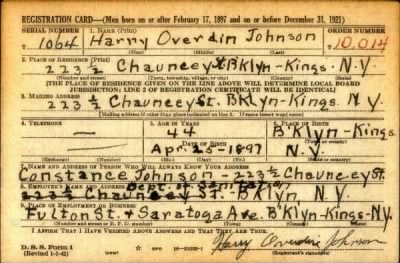 REGISTRATION CARD—(Men born on or after February 17, 1897 and on or before December 31, 1921)
SERIAL NUMBER 1. NAME (Print) ORDER NUMBER
T 1064 Harry Overdin Johnson T10,014
(First) (Middle) (Last)
2. PLACE OF RESIDENCE (Print)
223½ Chauncey St B'Klyn-Kings. N.Y.
(Number and street) (Town, township, village, or city) (County) (State)
[THE PLACE OF RESIDENCE GIVEN ON THE LINE ABOVE WILL DETERMINE LOCAL BOARD
JURISDICTION; LINE 2 OF REGISTRATION CERTIFICATE WILL BE IDENTICAL]
3. MAILING ADDRESS
223½ Chauncey St. B'Klyn-Kings. N.Y.
[Mailing address if other than place indicated on line 2. If same insert word same]
4. TELEPHONE 5. AGE IN YEARS 6. PLACE OF BIRTH
— 44 B'Klyn-Kings
DATE OF BIRTH (Town or county)
Apr. 25-1897 N.Y
(Mo.) (Day) (Yr.) (State or country)
7. NAME AND ADDRESS OF PERSON WHO WILL ALWAYS KNOW YOUR ADDRESS
Constance Johnson-223½ Chauncey St.
8. EMPLOYER'S NAME AND ADDRESS
Dept. of Sanitation
223½ Chauncey St. B'Klyn, N.Y.
9. PLACE OF EMPLOYMENT OR BUSINESS
Fulton St. + Saratoga Ave. B'Klyn-Kings-N.Y.
(Number and street or R. F. D. number) (Town) (County) (State)
I AFFIRM THAT I HAVE VERIFIED ABOVE ANSWERS AND THAT THEY ARE TRUE.
D. S. S. Form 1
(Revised 1-1-42) (over) GPO Harry Overdine Johnson
(Registrant's signature)